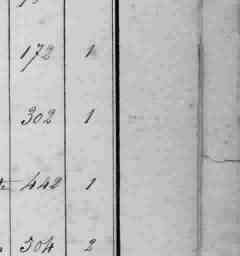 172 1
302 1
442 1
304 2